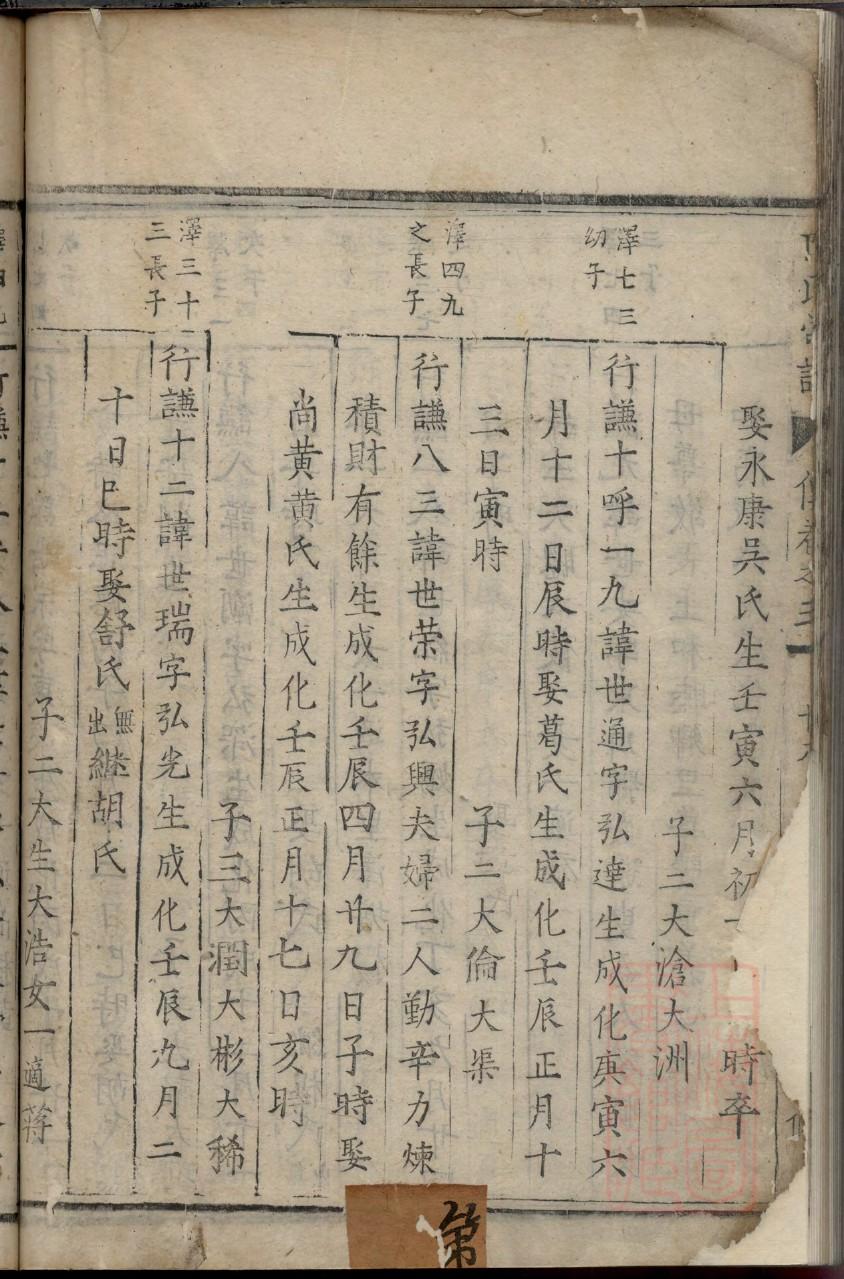 娶永康吳氏生壬寅六月初 時卒
子二大滄大洲
澤七三
幼子
行謙十呼一九諱世通字弘達生成化庚寅六
月十二日辰時娶葛氏生成化壬辰正月十
三日寅時
子二大倫大渠
澤四九
之長子
行謙八三諱世荣字弘興夫婦二人勤辛力煉
積財有餘生成化壬辰四月廿九日子時娶
尚黄黄氏生成化壬辰正月十七日亥時
子三大潤大彬大稀
澤三十
三長子
行謙十二諱世瑞字弘光生成化壬辰九月二
十日巳時娶舒氏無出繼胡氏
子二大生大浩女一適蒋
第